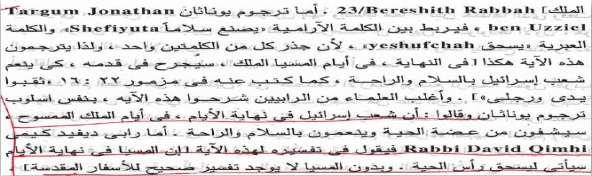 الملك] 23/Bereshith Rabbah . أما ترجوم يوناثان Targum Jonathan
ben Uzziel ، فيربط بين الكلمة الآرامية «يصنع سلاماً Shefiyuta» والكلمة
العبرية «يسحق yeshufchah» ، لأن جذر كل من الكلمتين واحد ، ولذا يترجمون
هذه الآية هكذا [في النهاية ، في أيام المسيا الملك ، سيجرح في قدمه ، كي ينعم
شعب إسرائيل بالسلام والراحة ، كما كتب عنه في مزمور ٢٢ : ١٦ «ثقبوا
يدى ورجلى»] . وأغلب العلماء من الرابيين شرحوا هذه الآيه ، بنفس اسلوب
ترجوم يوناثان وقالوا : أن شعب إسرائيل في نهاية الأيام ، في أيام الملك الممسوح ،
سيشفون من عضة الحية وينعمون بالسلام والراحة . أما رابى ديفيد كيمى
Rabbi David Qimhi فيقول في تفسيره لهذه الآية [إن المسيا في نهاية الأيام
سيأتي ليسحق رأس الحية . وبدون المسيا لا يوجد تفسير صحيح للأسفار المقدسة] .